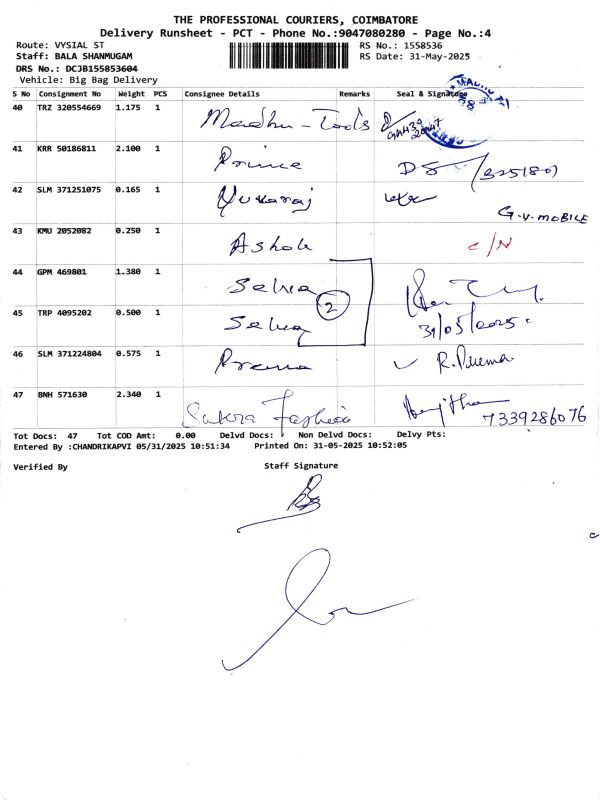 THE PROFESSIONAL COURIERS, COIMBATORE
Delivery Runsheet - PCT - Phone No.:9047080280 - Page No.:4
Route: VYSIAL ST
Staff: BALA SHANMUGAM
DRS No.: DCJB155853604
Vehicle: Big Bag Delivery
RS No.: 1558536
RS Date: 31-May-2025
S No Consignment No Weight PCS Consignee Details Remarks Seal & Signature
40 TRZ 320554669 1.175 1 Madhu - Tools
41 KRR 50186811 2.100 1 Prince
42 SLM 371251075 0.165 1 Yuvaraj G.V. MOBILE
43 KMU 2052082 0.250 1 Ashok C/N
44 GPM 469801 1.380 1 Selva
2
45 TRP 4095202 0.500 1 Selva 31/05/2025
46 SLM 371224804 0.575 1 Prema R. Prema
47 BNH 571630 2.340 1 Sukra Fashion 7339286076
Tot Docs: 47 Tot COD Amt: 0.00 Delvd Docs: Non Delvd Docs: Delvy Pts:
Entered By :CHANDRIKAPVI 05/31/2025 10:51:34 Printed On: 31-05-2025 10:52:05
Verified By Staff Signature